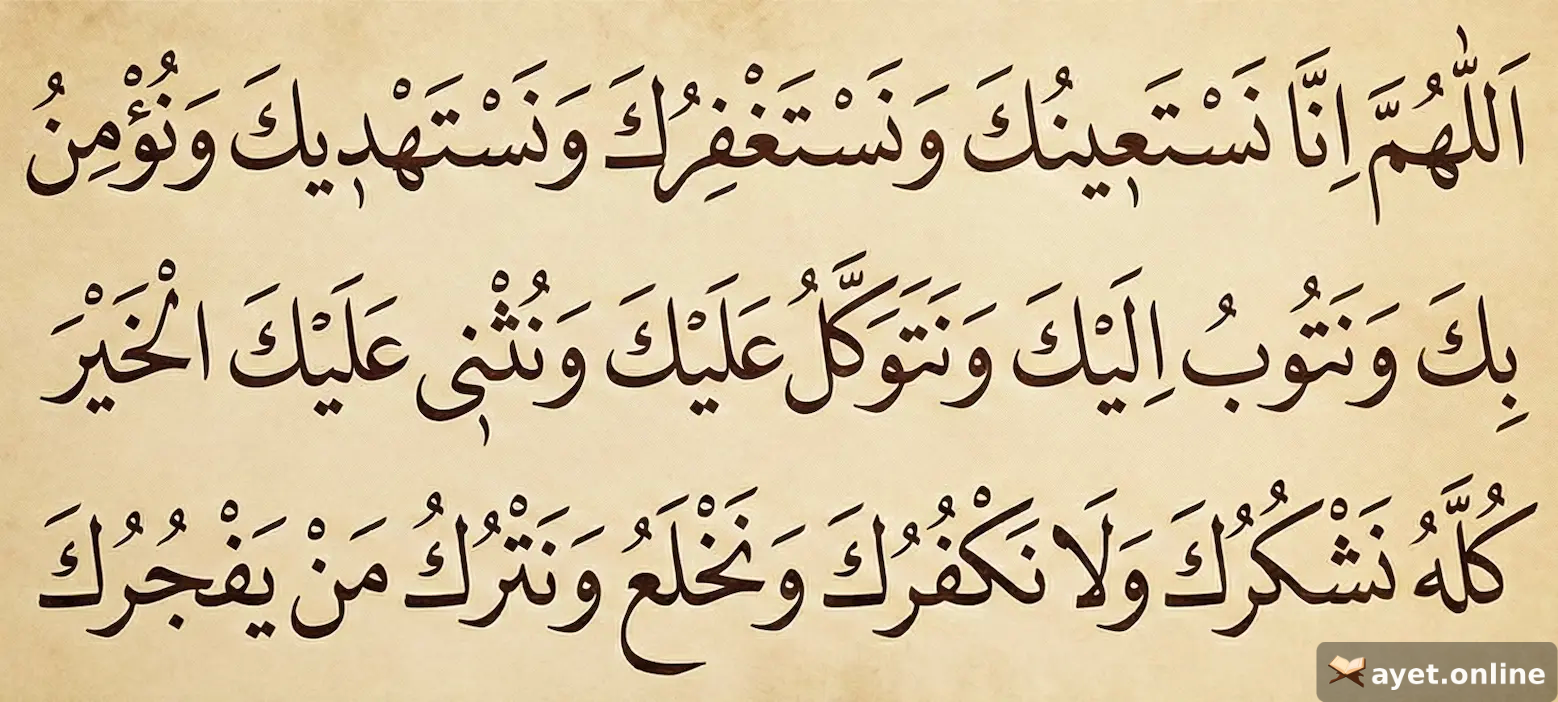 اَللّٰهُمَّ اِنَّا نَسْتَعٖينُكَ وَنَسْتَغْفِرُكَ وَنَسْتَهْدٖيكَ وَنُؤْمِنُ
بِكَ وَنَتُوبُ اِلَيْكَ وَنَتَوَكَّلُ عَلَيْكَ وَنُثْنٖى عَلَيْكَ الْخَيْرَ
كُلَّهُ نَشْكُرُكَ وَلَا نَكْفُرُكَ وَنَخْلَعُ وَنَتْرُكُ مَنْ يَفْجُرُكَ
ayet.online